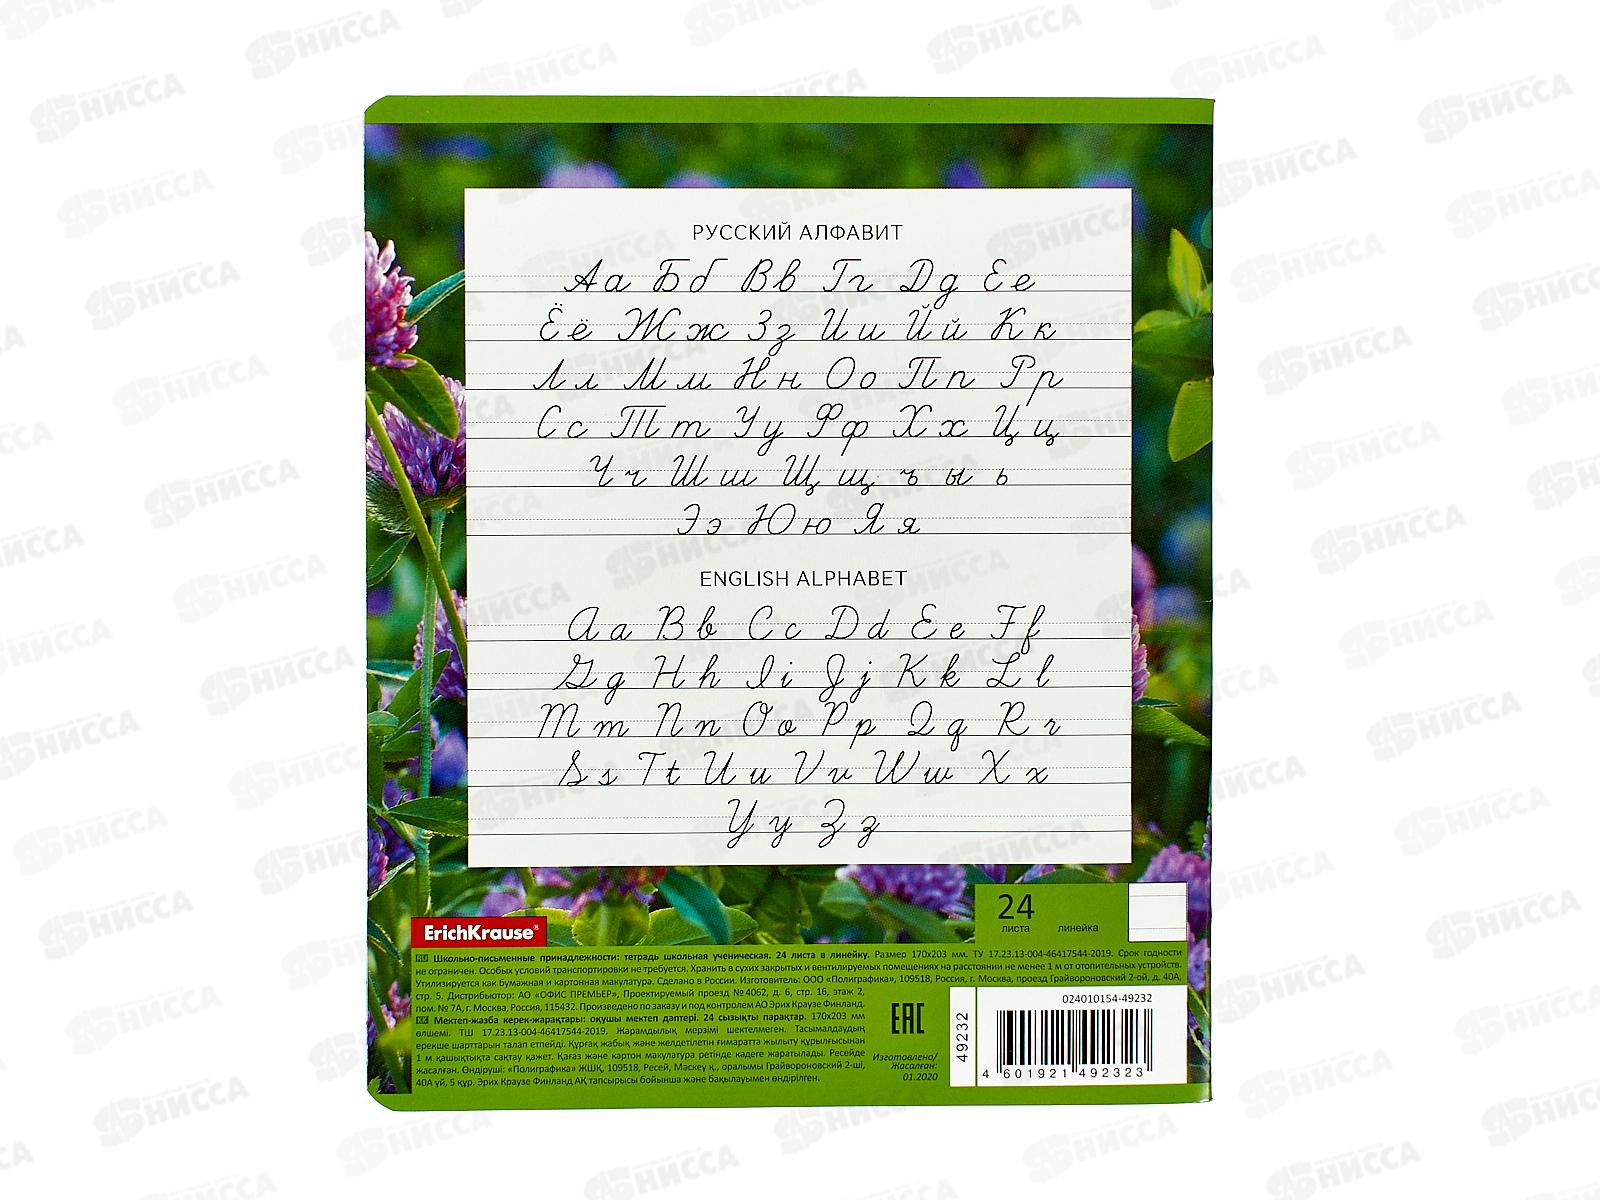 РУССКИЙ АЛФАВИТ
Аа Бб Вв Гг Дд Ее
Ёё Жж Зз Ии Йй Кк
Лл Мм Нн Оо Пп Рр
Сс Тт Уу Фф Хх Цц
Чч Шш Щщ ъ ы ь
Ээ Юю Яя
ENGLISH ALPHABET
Aa Bb Cc Dd Ee Ff
Gg Hh Ii Jj Kk Ll
Mm Nn Oo Pp Qq Rr
Ss Tt Uu Vv Ww Xx
Yy Zz
24
листа линейка
ErichKrause®
RU Школьно-письменные принадлежности: тетрадь школьная ученическая. 24 листа в линейку. Размер 170х203 мм. ТУ 17.23.13-004-46417544-2019. Срок годности
не ограничен. Особых условий транспортировки не требуется. Хранить в сухих закрытых и вентилируемых помещениях на расстоянии не менее 1 м от отопительных устройств.
Утилизируется как бумажная и картонная макулатура. Сделано в России. Изготовитель: ООО «Полиграфика», 109518, Россия, г. Москва, проезд Грайвороновский 2-ой, д. 40А,
стр. 5. Дистрибьютор: АО «ОФИС ПРЕМЬЕР», Проектируемый проезд №4062, д. 6, стр. 16, этаж 2,
пом. № 7А, г. Москва, Россия, 115432. Произведено по заказу и под контролем АО Эрих Краузе Финланд.
KK Мектеп-жазба керек-жарақтары: оқушы мектеп дәптері. 24 сызықты парақтар. 170х203 мм
өлшемі. ТШ 17.23.13-004-46417544-2019. Жарамдылық мерзімі шектелмеген. Тасымалдаудың
ерекше шарттарын талап етпейді. Құрғақ жабық және желдетілетін ғимаратта жылыту құрылғысынан
1 м қашықтықта сақтау қажет. Қағаз және картон макулатура ретінде кәдеге жаратылады. Ресейде
жасалған. Өндіруші: «Полиграфика» ЖШҚ, 109518, Ресей, Мәскеу қ., оралымы Грайвороновский 2-ші,
40А үй, 5 құр. Эрих Краузе Финланд АҚ тапсырысы бойынша және бақылауымен өндірілген.
EAC
Изготовлено/
Жасалған:
01.2020
49232
024010154-49232
4 601921 492323
НИССА